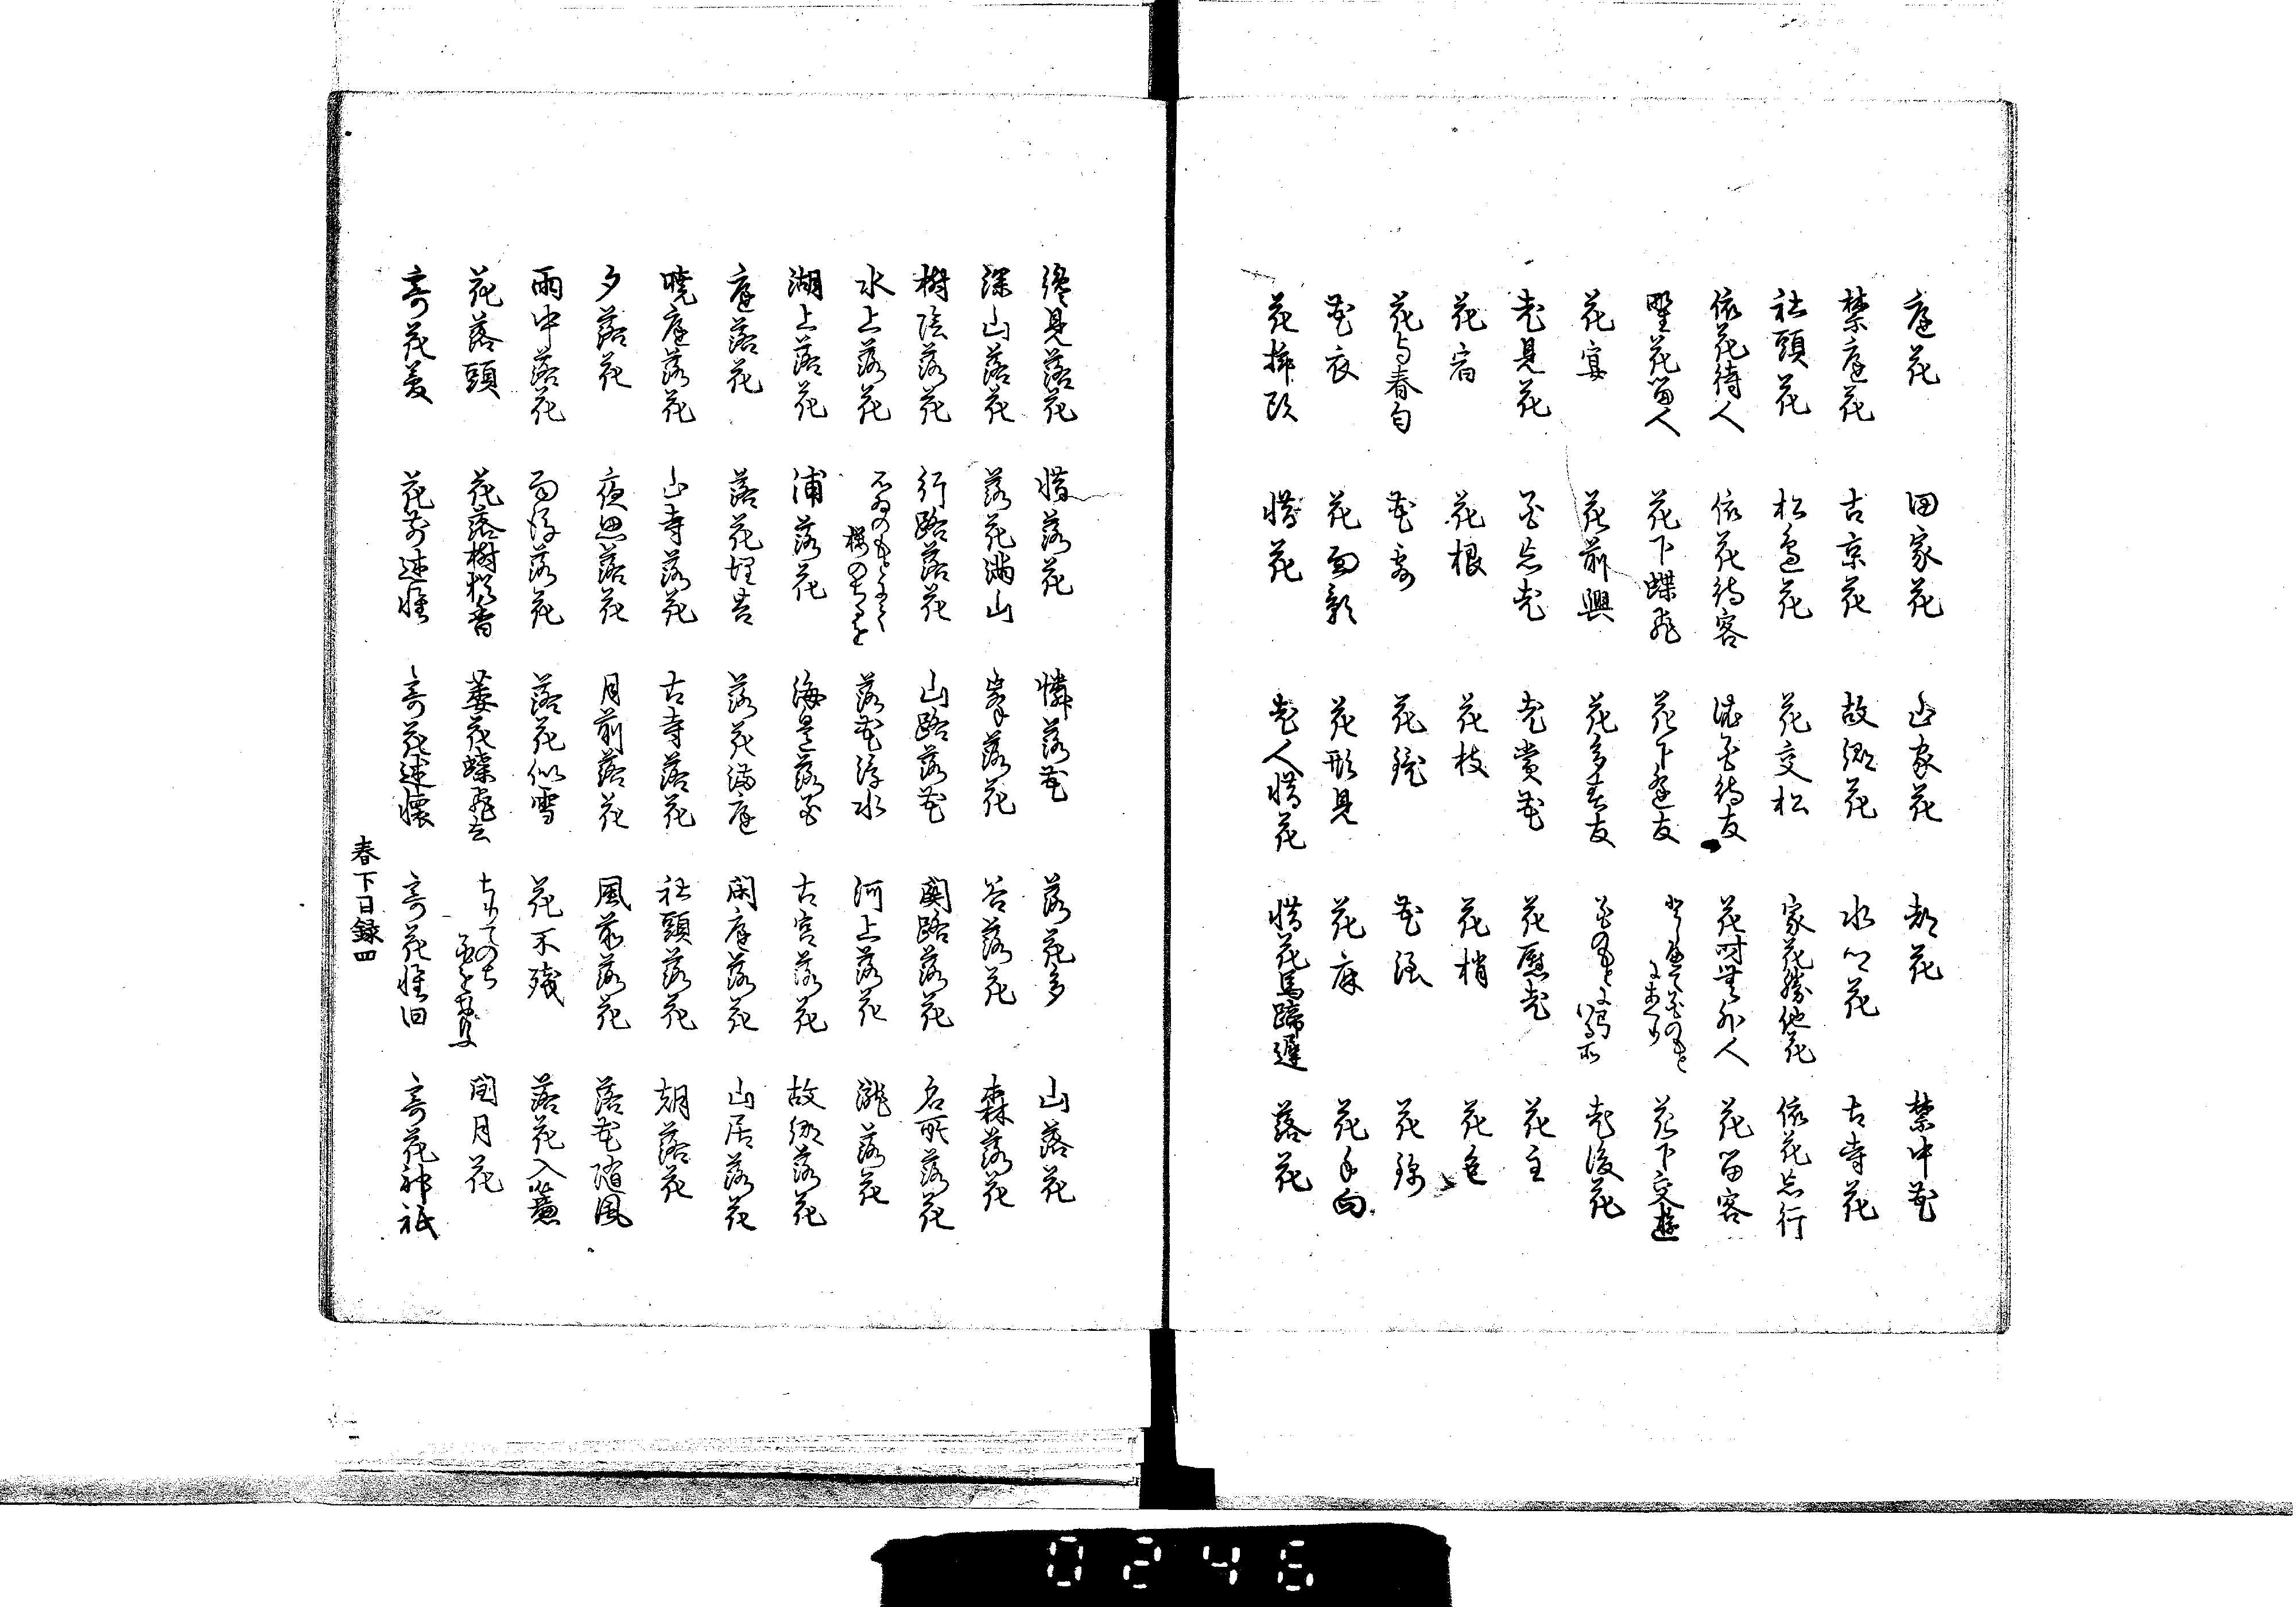 庭花　田家花　山家花　都花　禁中花
禁庭花　古京花　故郷花　水辺花　古寺花
社頭花　松辺花　花交松　家花勝他花　依花忘行
依花待人　依花待客　待友　花時無外人　花留客
野花留人　花下蝶飛　花下逢友　花下交遊
花宴　花前興　花多春友　花後花
花見花　花忘花　花賞花　花慰花　花主
花宿　花根　花枝　花梢　花色
花与春匂　花鏡　花錦
花衣　花面影　花形見　花手向
花挿頭　惜花　老人惜花　惜花馬蹄遅　落花
纔見落花　惜落花　憐落花　落花多　山落花
深山落花　落花満山　峯落花　谷落花　森落花
樹陰落花　行路落花　山路落花　関路落花　名所落花
水上落花　落花浮水　河上落花　瀧落花
湖上落花　浦落花　海辺落花　古宮落花　故郷落花
庭落花　落花埋苔　落花満庭　閑庭落花　山居落花
暁庭落花　山寺落花　古寺落花　社頭落花　朝落花
夕落花　夜思落花　月前落花　風前落花　落花随風
雨中落花　雨後落花　落花似雪　花不残　落花入簾
花落頭　花落樹猶香　萎花蝶飛去　閏月花
寄花夢　花前述懐　寄花述懐　寄花懐旧　寄花神祇
春下目録四
0246